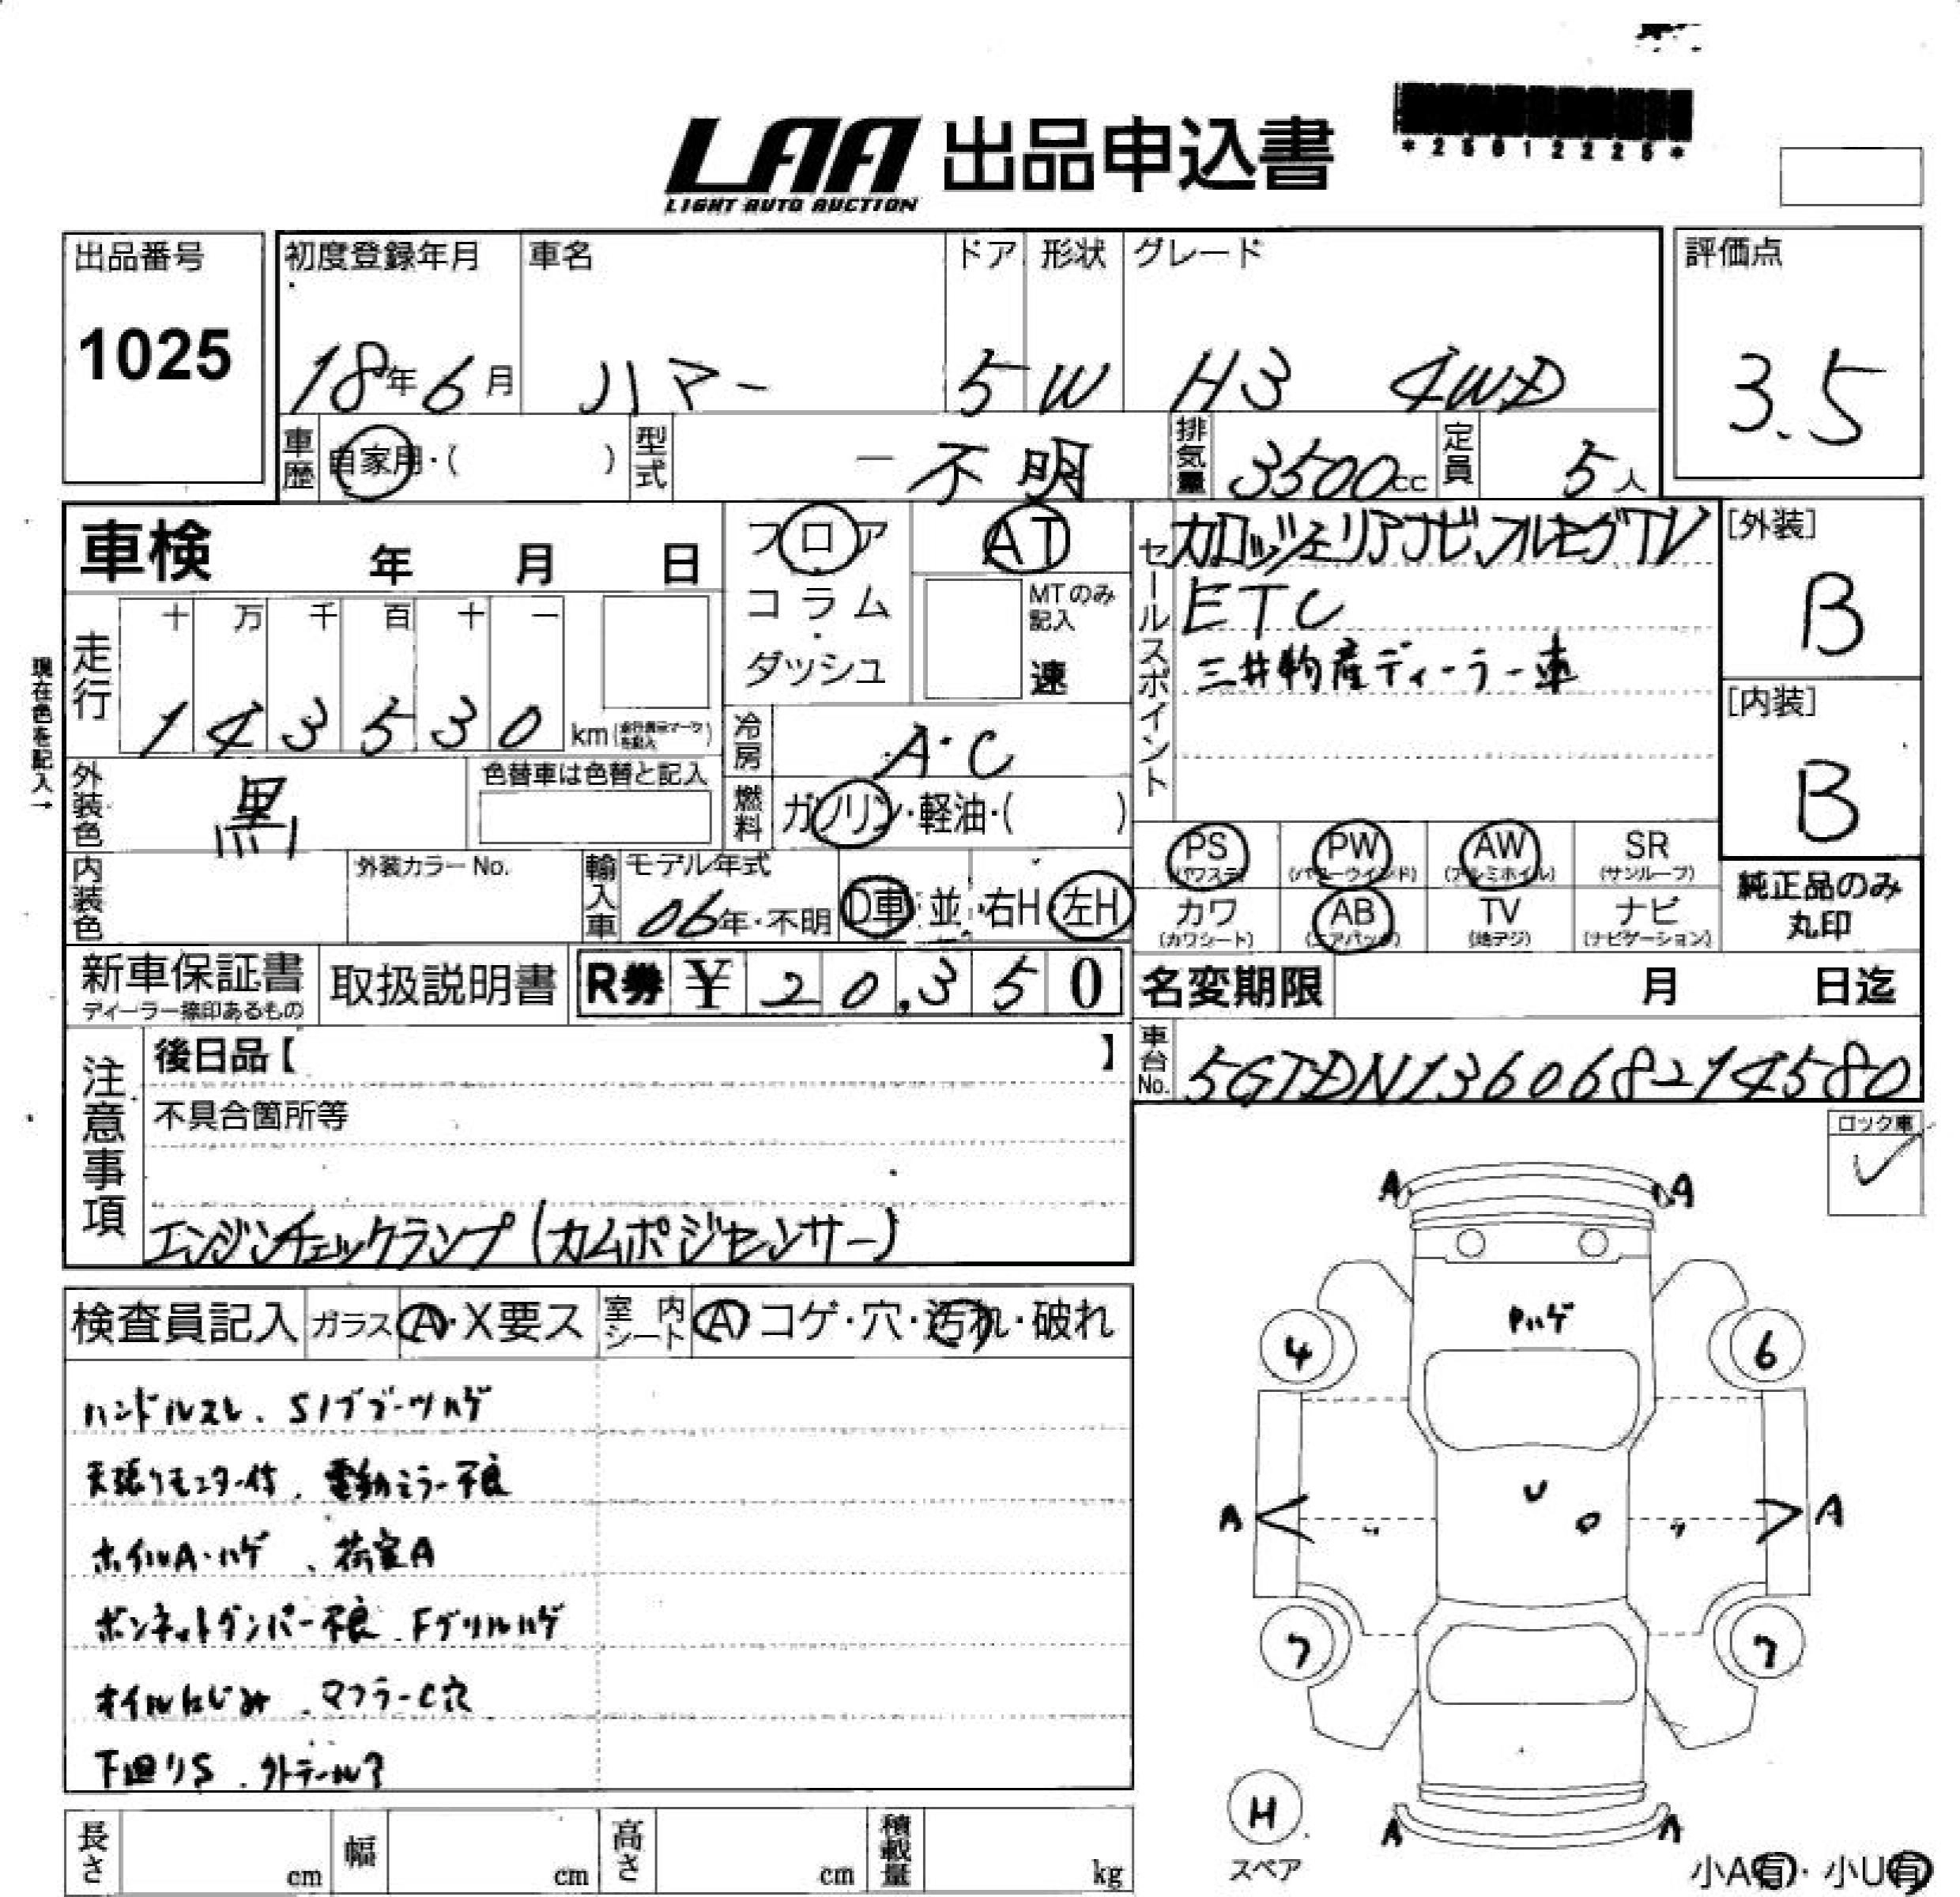 LAA 出品申込書
LIGHT AUTO AUCTION
出品番号
1025
初度登録年月 車名 ドア 形状 グレード
18年6月 ハマー 5 W H3 4WD
評価点
3.5
車歴 自家用・( ) 型式 ー 不明 排気量 3500cc 定員 5人
車検 年 月 日
フロア AT
コラム MTのみ記入
ダッシュ 速
セールスポイント
カロッジェリアナビ、フルセグTV
ETC
三井物産ディーラー車
[外装]
B
[内装]
B
走行 十 万 千 百 十 一
1 4 3 5 3 0 km
現在色を記入→
冷房 A・C
外装色 黒 色替車は色替と記入
燃料 ガソリン・軽油・( )
内装色 外装カラーNo. 輸入車 モデル年式
06年・不明 D車 並 右H・左H
PS PW AW SR
(パワステ) (パワーウインド) (アルミホイル) (サンルーフ)
カワ AB TV ナビ
(カワシート) (エアバッグ) (地デジ) (ナビゲーション)
純正品のみ
丸印
新車保証書 取扱説明書 R券 ¥ 20,350
ディーラー捺印あるもの
名変期限 月 日迄
車台No. 5GTDN136068214580
注意事項
後日品【 】
不具合箇所等
エンジンチェックランプ(カムポジセンサー)
ロック車
検査員記入 ガラス A・X要ス 室内シート A コゲ・穴・汚れ・破れ
ハンドルスレ、Sノブブーツハゲ
天張りモニター付、電動ミラー不良
ホイルA・ハゲ、荷室A
ボンネットダンパー不良、Fグリルハゲ
オイルにじみ、マフラーC穴
下廻りS、外テール?
A A
Pハゲ
4 6
U
A A
7 7
H
スペア
A A
小A有・小U有
長さ cm 幅 cm 高さ cm 積載量 kg